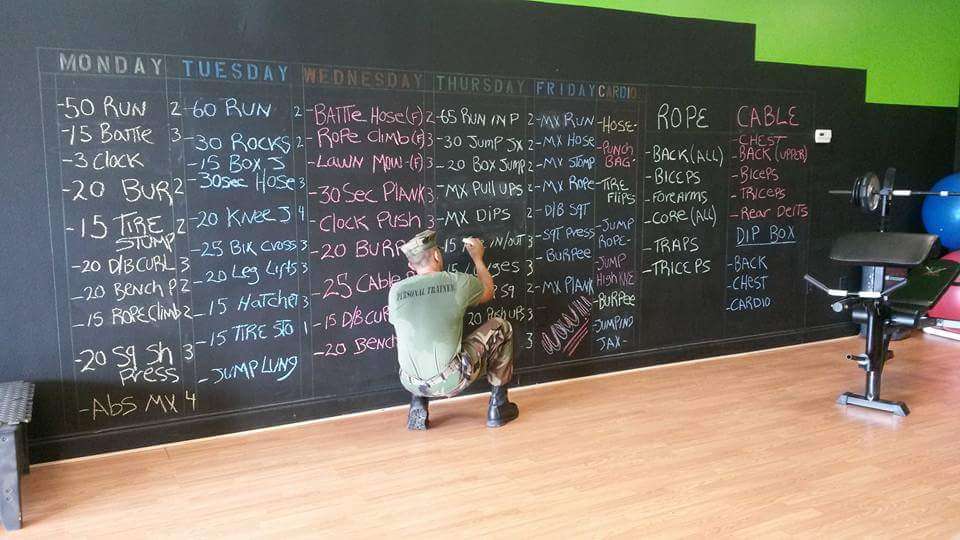 MONDAY
-50 RUN 2
-15 BATTLE 3
-3 CLOCK
-20 BUR 2
-15 TIRE 2
STUMP
-20 D/B CURL 3
-20 BENCH P 2
-15 ROPE CLIMB 2
-20 SQ SH 3
PRESS
-ABS MX 4
TUESDAY
-60 RUN 2
-30 ROCKS 2
-15 BOX J
-30SEC HOSE 3
-20 KNEE J 4
-25 BIX CROSS 3
-20 LEG LIFTS 3
-15 HATCHET 3
-15 TIRE STO 1
-JUMP LUNG
WEDNESDAY
-BATTLE HOSE (F) 2
-ROPE CLIMB (F) 3
-LAWN MOW-(F) 3
-30 SEC PLANK 3
-CLOCK PUSH 3
-20 BURP
-25 CABLE
-15 D/B CUR
-20 BENC
THURSDAY
-65 RUN IN P 2
-30 JUMP JX 2
-20 BOX JUMP 2
-MX PULL UPS 2
-MX DIPS 2
-15 IN/OUT 3
SQ 2
PUSHUPS 3
FRIDAY
-MX RUN
-MX HOSE
-MX STOMP
-MX ROPE
-D/B SQT
-SQT PRESS
-BURPEE
-MX PLANK
CARDIO
-HOSE-
-PUNCH
BAG-
-TIRE
FLIPS
-JUMP
ROPE-
-JUMP
HIGH KNE
-BURPEE
-JUMPING
JAX-
ROPE
-BACK (ALL)
-BICEPS
-FOREARMS
-CORE (ALL)
-TRAPS
-TRICEPS
CABLE
-CHEST
-BACK (UPPER)
-BICEPS
-TRICEPS
-REAR DELTS
DIP BOX
-BACK
-CHEST
-CARDIO
PERSONAL TRAINER